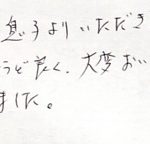 息子よりいただき
うど良く、大変おい
ました。